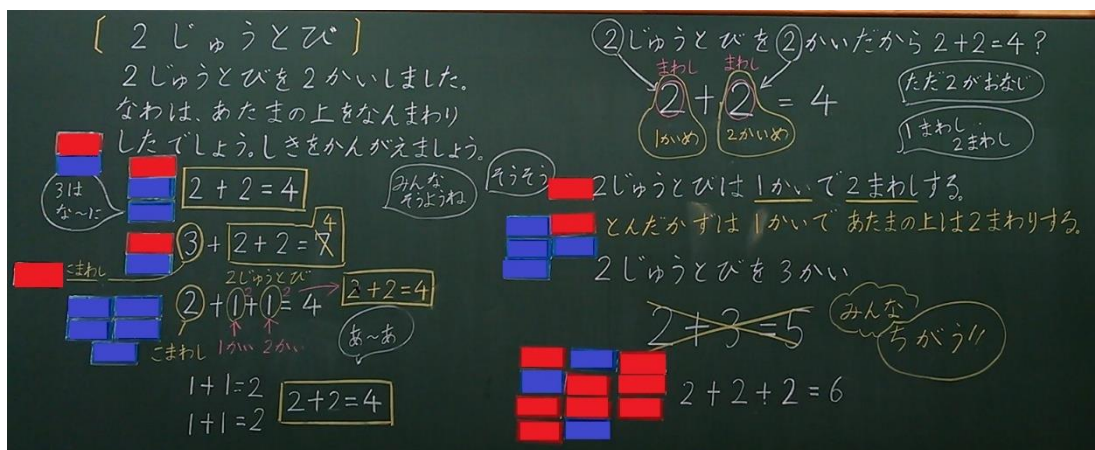 〔２じゅうとび〕
２じゅうとびを２かいしました。
なわは、あたまの上をなんまわり
したでしょう。しきをかんがえましょう。
3は
な～に
2+2=4
みんな
そうようね
そうそう
3+2+2=7
4
こまわし
2じゅうとび
2+1+1=4
2 2
2+2=4
こまわし
1かい 2かい
あ～あ
1+1=2
1+1=2
2+2=4
②じゅうとびを②かいだから 2+2=4?
まわし まわし
2+2=4
1かいめ 2かいめ
ただ2がおなじ
1まわし
2まわし
2じゅうとびは1かいで2まわしする。
とんだかずは1かいであたまの上は2まわりする。
2じゅうとびを3かい
2+3=5
みんな
ちがう!!
2+2+2=6